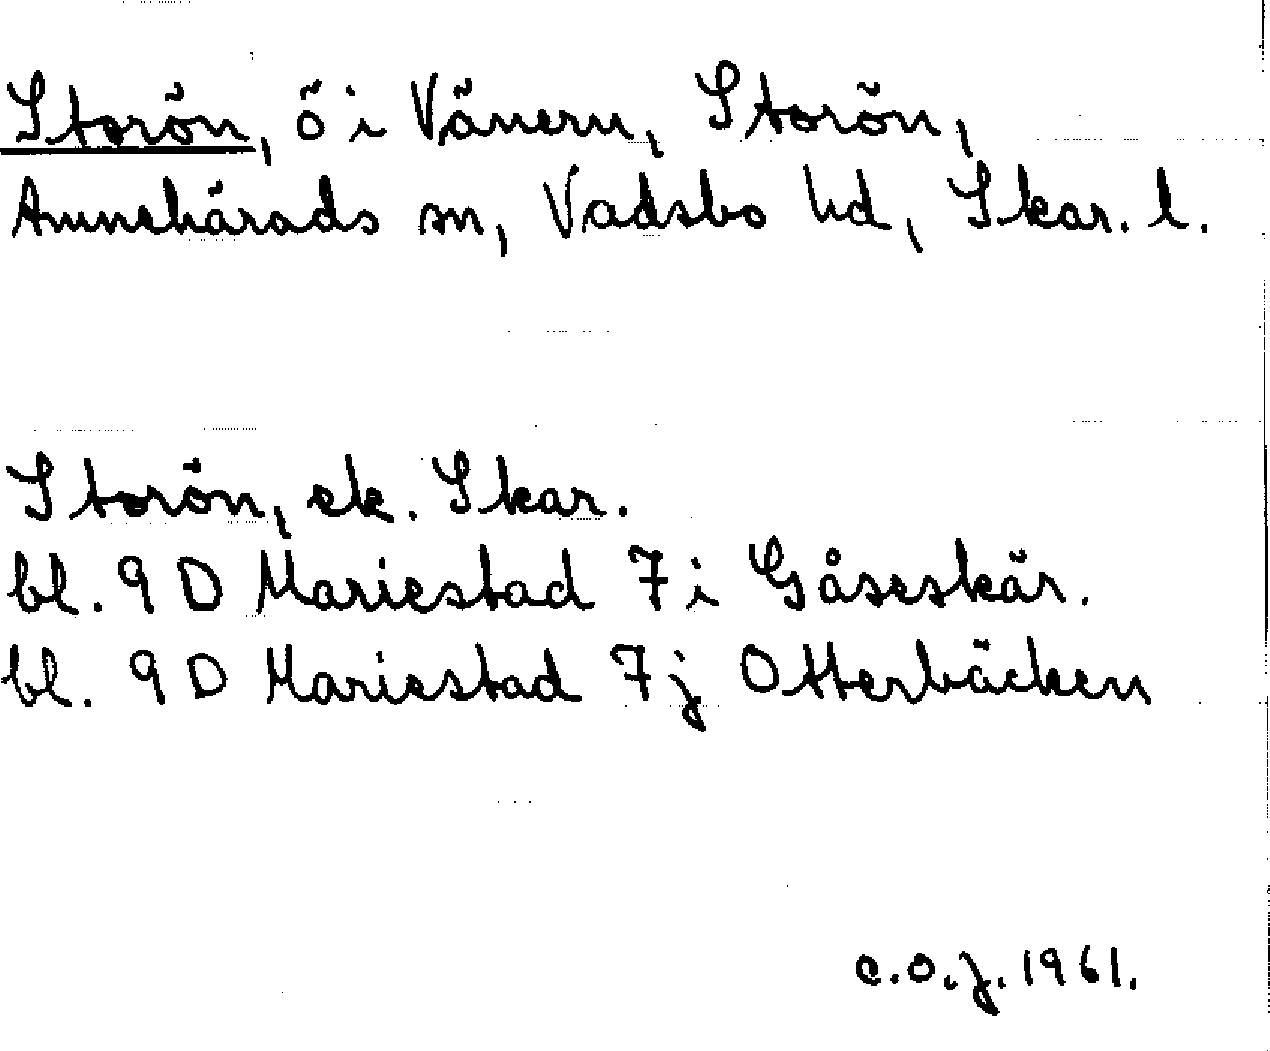 Storön, ö i Vänern, Storön,
Amnehärads sn, Vadsbo hd, Skar. l.
Storön, ek. Skar.
bl. 9 D Mariestad 7 i Gåseskär.
bl. 9 D Mariestad 7 j Otterbäcken
c.o.j. 1961.